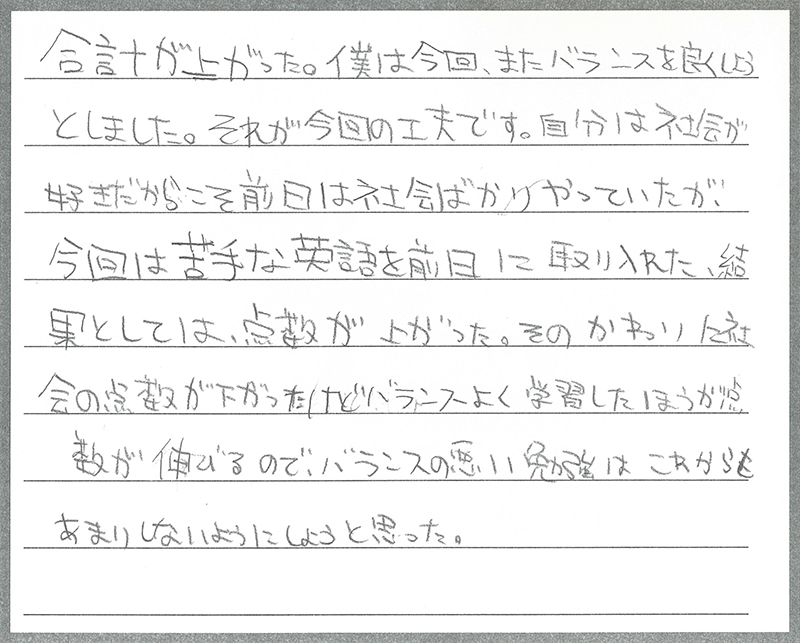 合計が上がった。僕は今回、またバランスを良くしよう
としました。それが今回の工夫です。自分は社会が
好きだからこそ前日は社会ばかりやっていたが、
今回は苦手な英語を前日に取り入れた、結
果としては、点数が上がった。そのかわりに社
会の点数が下がったけどバランスよく学習したほうが点
数が伸びるので、バランスの悪い勉強はこれからも
あまりしないようにしようと思った。